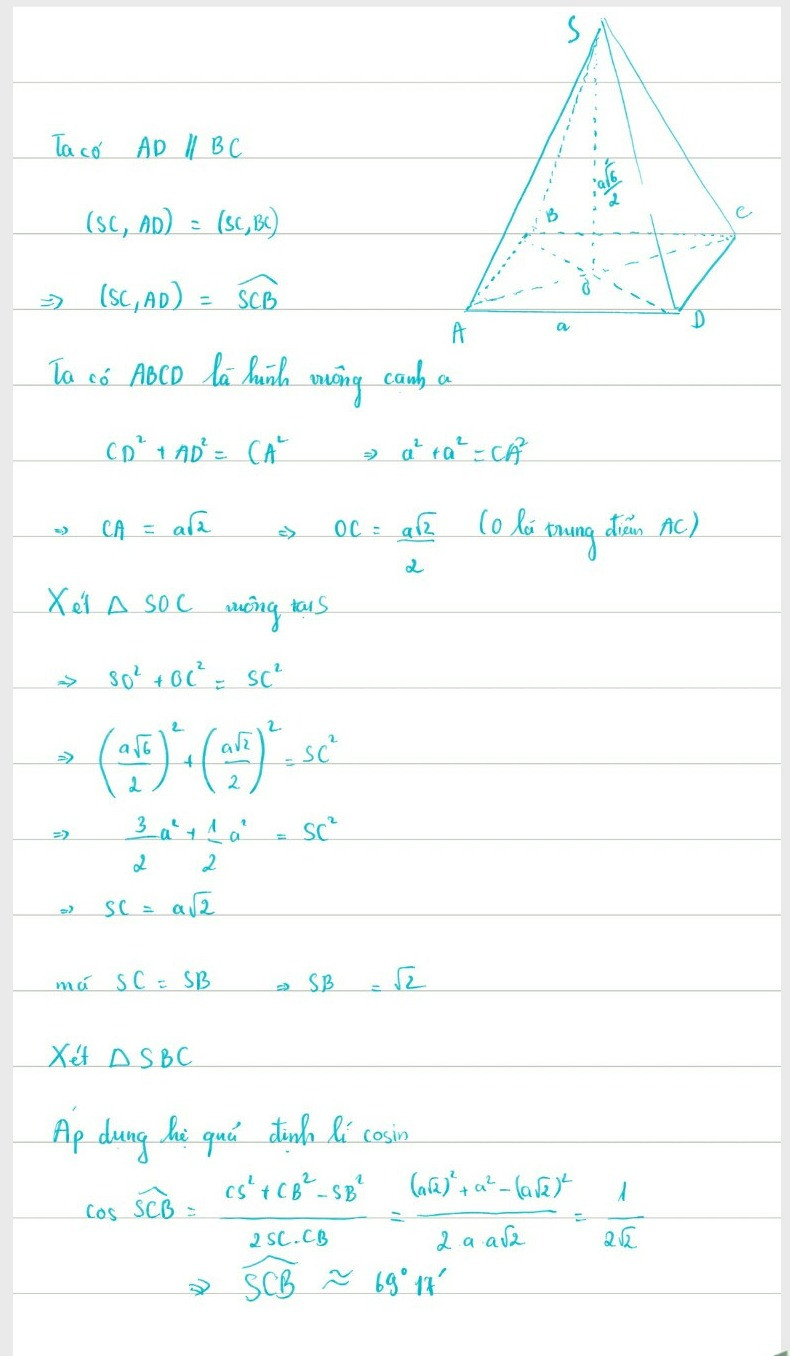 S
a√6/2
B
C
O
A
a
D
Ta có AD // BC
(SC, AD) = (SC, BC)
=> (SC, AD) = SCB^
Ta có ABCD là hình vuông cạnh a
CD² + AD² = CA² => a² + a² = CA²
=> CA = a√2 => OC = a√2/2 (O là trung điểm AC)
Xét Δ SOC vuông tại S
=> SO² + OC² = SC²
=> (a√6/2)² + (a√2/2)² = SC²
=> 3/2 a² + 1/2 a² = SC²
=> SC = a√2
mà SC = SB => SB = √2
Xét Δ SBC
Áp dụng hệ quả định lí cosin
cos SCB^ = (CS² + CB² - SB²)/(2SC.CB) = ((a√2)² + a² - (a√2)²)/(2.a.a√2) = 1/(2√2)
=> SCB^ ≈ 69°17'